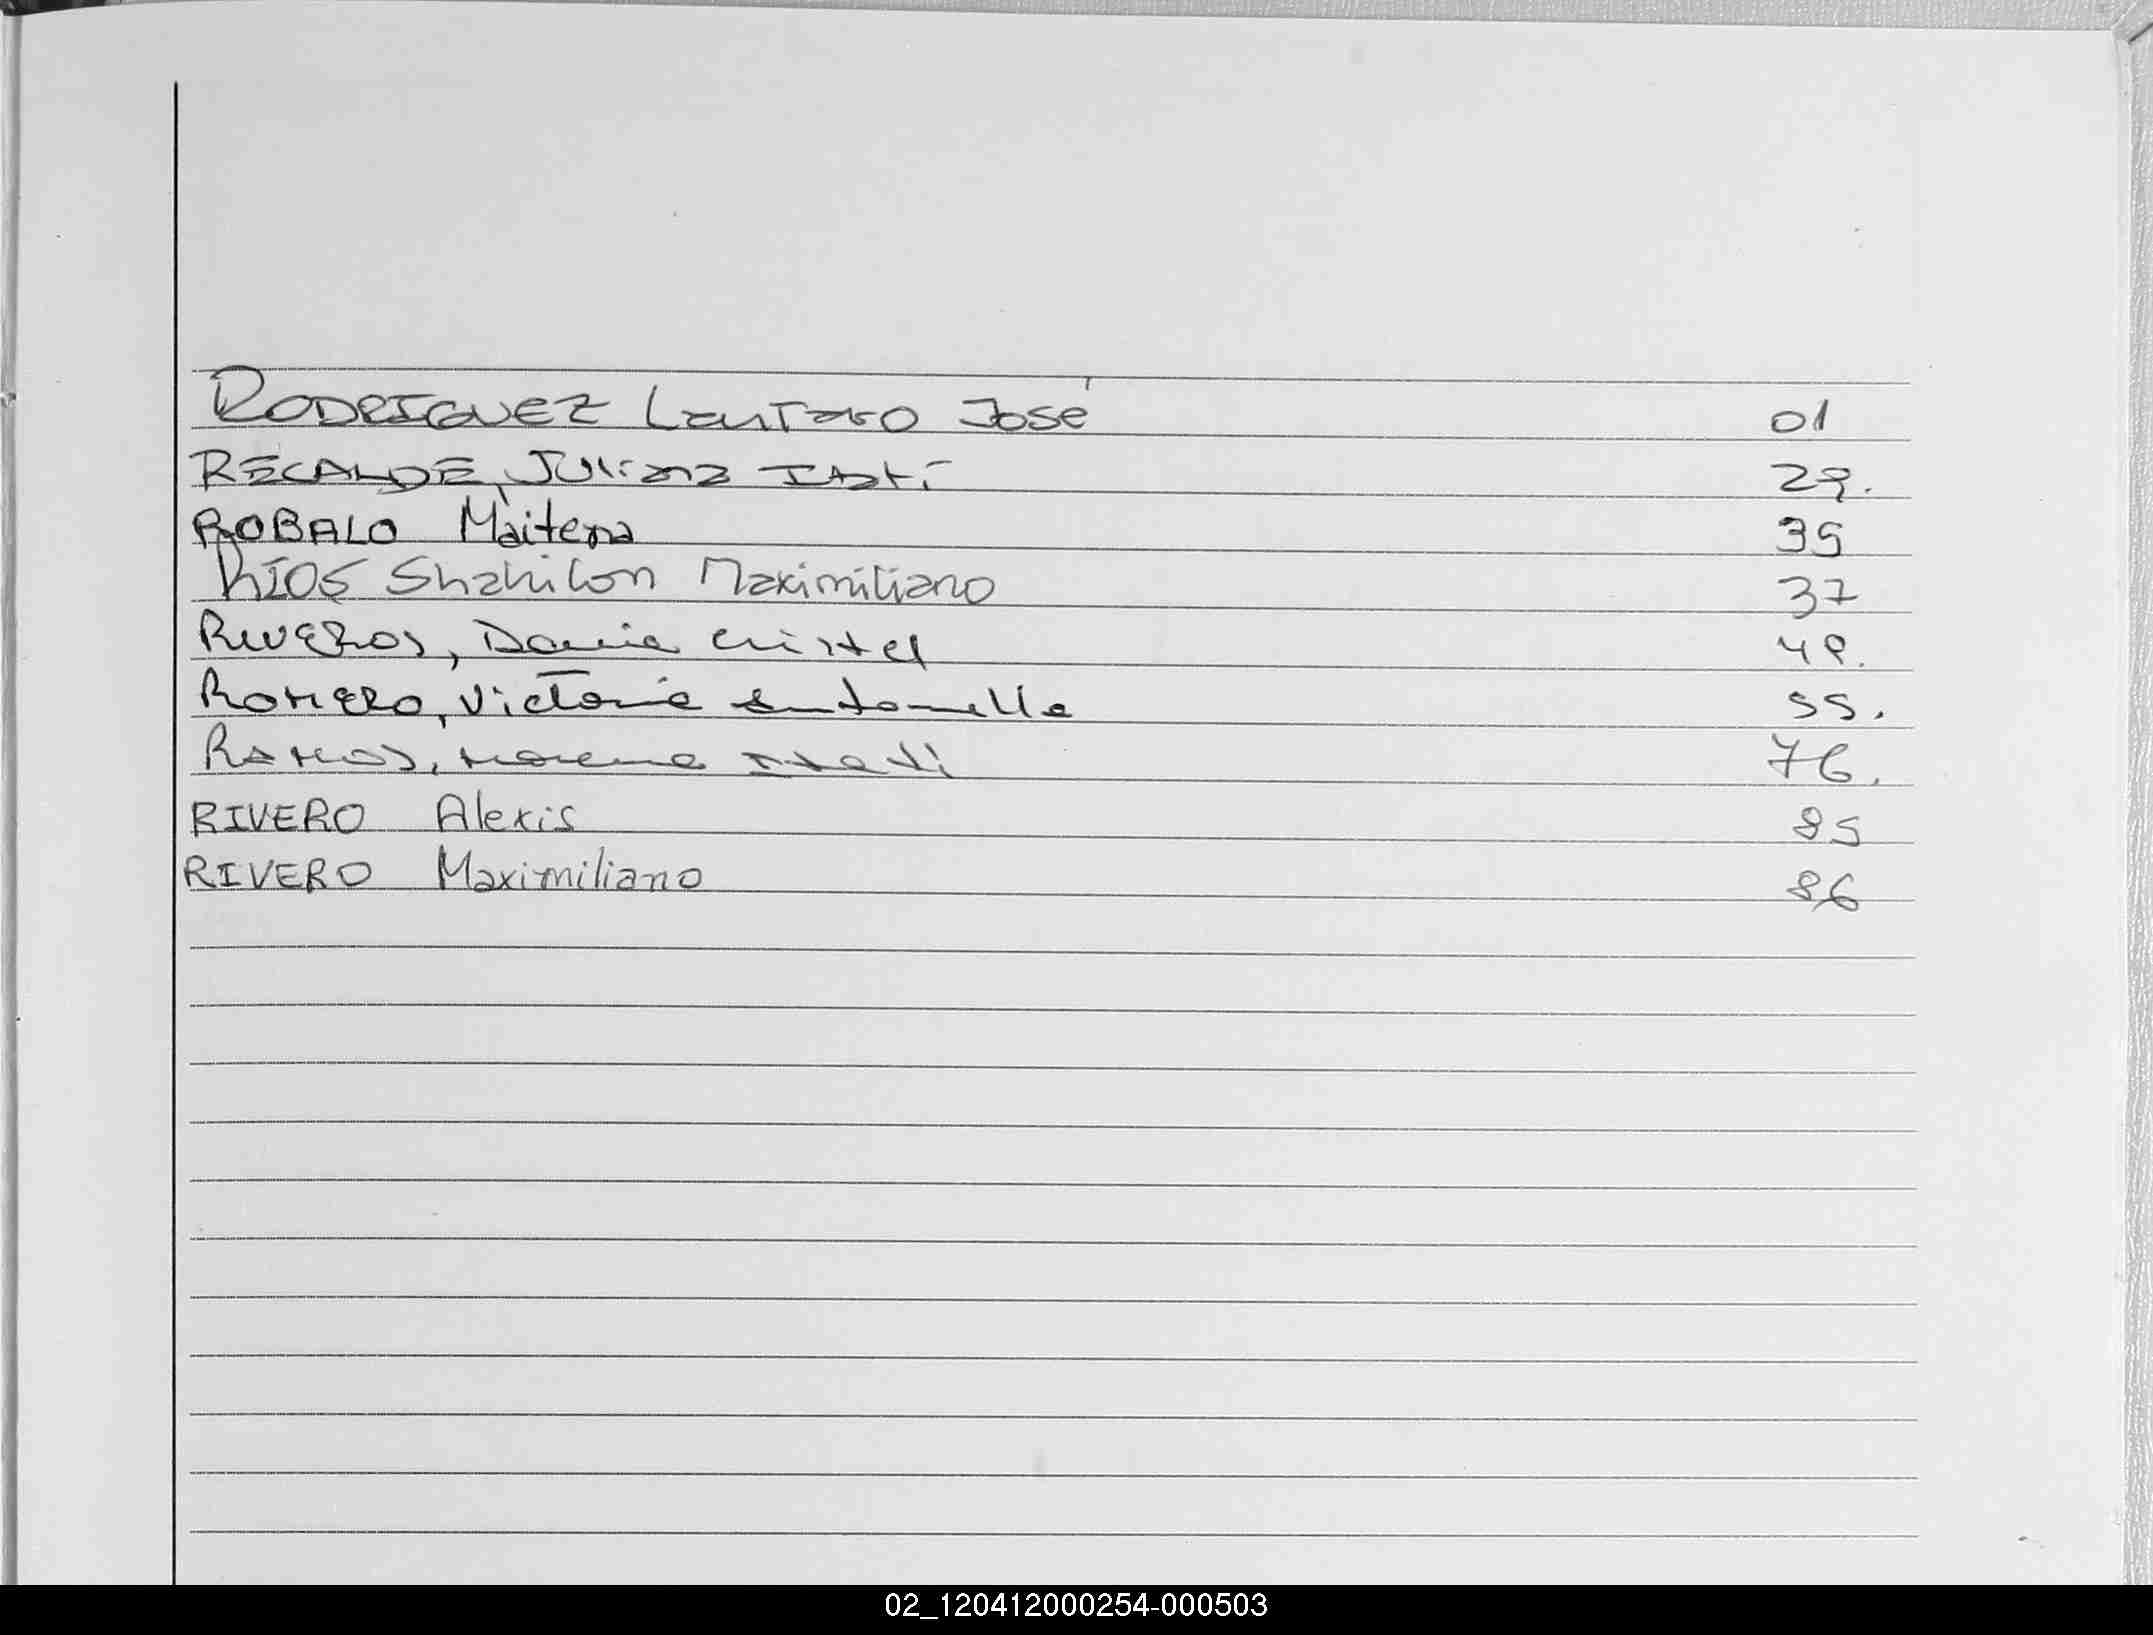 RODRIGUEZ Lautaro José 01
RECALDE, Juliana Itatí 29.
ROBALO Maitena 35
RÍOS Maximiliano 37
RIVEROS, Cristel 48.
ROMERO, Victoria Antonella 55.
RAMOS, Morena Itatí 76.
RIVERO Alexis 85
RIVERO Maximiliano 86
02_120412000254-000503